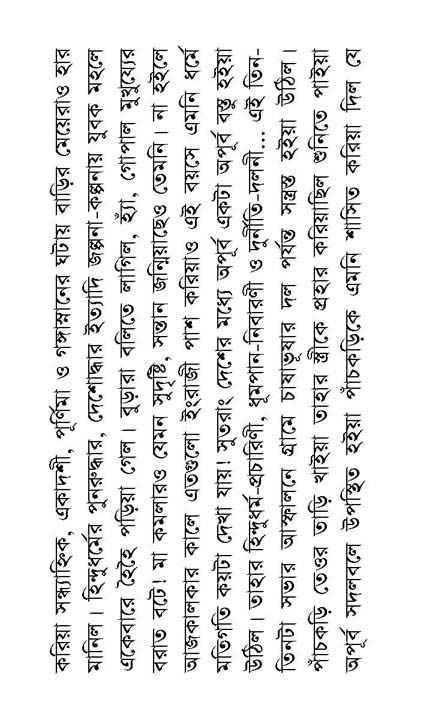 করিয়া সন্ধ্যাহ্নিক, একাদশী, পূর্ণিমা ও গঙ্গাস্নানের ঘটায় বাড়ির মেয়েরাও হার
মানিল। হিন্দুধর্মের পুনরুদ্ধার, দেশোদ্ধার ইত্যাদি জল্পনা-কল্পনায় যুবক মহলে
একেবারে হৈহৈ পড়িয়া গেল। বুড়ারা বলিতে লাগিল, হ্যাঁ, গোপাল মুখুয্যের
বরাত বটে! মা কমলারও যেমন সুদৃষ্টি, সন্তান জন্মিয়াছেও তেমনি। না হইলে
আজকালকার কালে এতগুলো ইংরাজী পাশ করিয়াও এই বয়সে এমনি ধর্মে
মতিগতি কয়টা দেখা যায়! সুতরাং দেশের মধ্যে অপূর্ব একটা অপূর্ব বস্তু হইয়া
উঠিল। তাহার হিন্দুধর্ম-প্রচারিণী, ধূমপান-নিবারণী ও দুর্নীতি-দলনী... এই তিন-
তিনটা সভার আস্ফালনে গ্রামে চাষাভুষার দল পর্যন্ত সন্ত্রস্ত হইয়া উঠিল।
পাঁচকড়ি তেওর তাড়ি খাইয়া তাহার স্ত্রীকে প্রহার করিয়াছিল শুনিতে পাইয়া
অপূর্ব সদলবলে উপস্থিত হইয়া পাঁচকড়িকে এমনি শাসিত করিয়া দিল যে